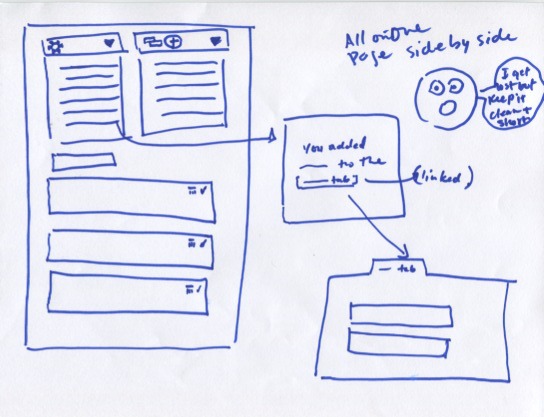 All on one
page side by side
I get
lost but
keep it
clean +
short
You added
to the
tab
(linked)
tab